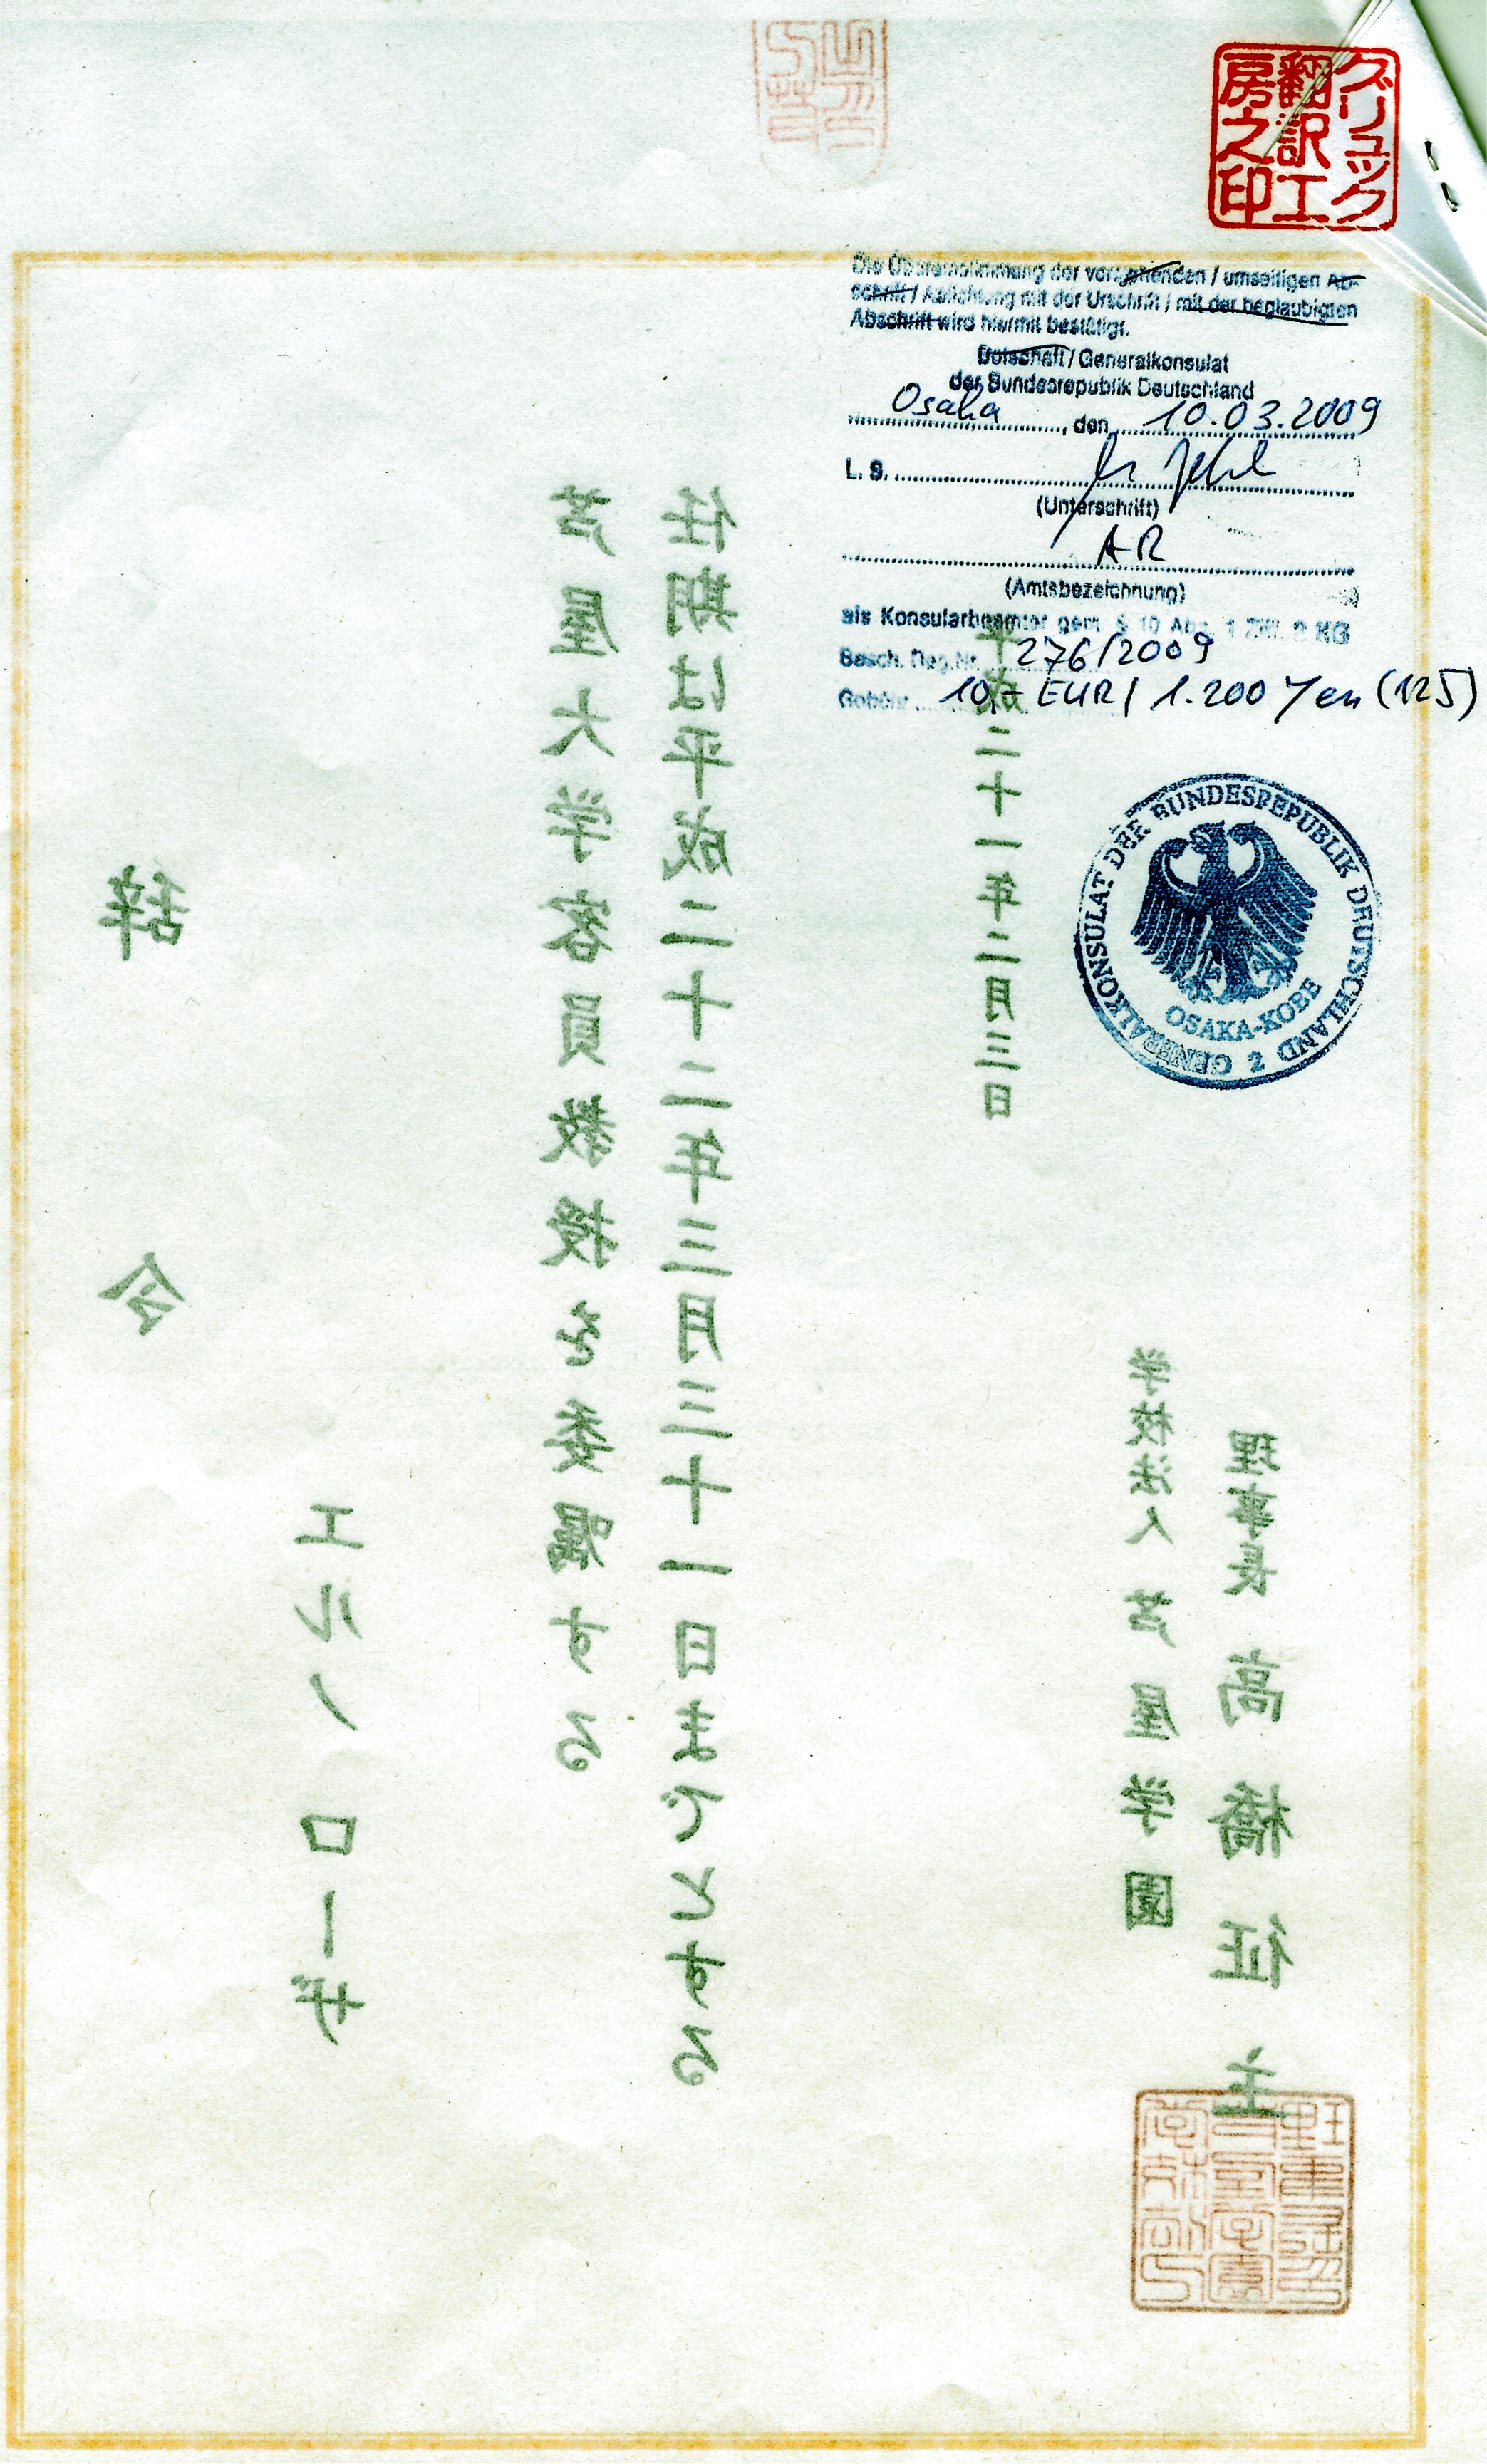 グリュック
翻訳工
房之印
Die Übereinstimmung der vorgehenden / umseitigen Ab-
schrift / Ablichtung mit der Urschrift / mit der beglaubigten
Abschrift wird hiermit bestätigt.
Botschaft / Generalkonsulat
der Bundesrepublik Deutschland
Osaka, den 10.03.2009
L. S.
(Unterschrift)
AR
(Amtsbezeichnung)
als Konsularbeamter gem. § 10 Abs. 1 Ziff. 2 KG
Besch. Reg. Nr. 276/2009
Gebühr 10,- EUR / 1.200 Yen (125)
GENERALKONSULAT DER BUNDESREPUBLIK DEUTSCHLAND 2
OSAKA-KOBE
辞令
エルノ ローザ
芦屋大学客員教授を委嘱する
任期は平成二十二年三月三十一日までとする
平成二十一年二月三日
学校法人 芦屋学園
理事長 高橋征主